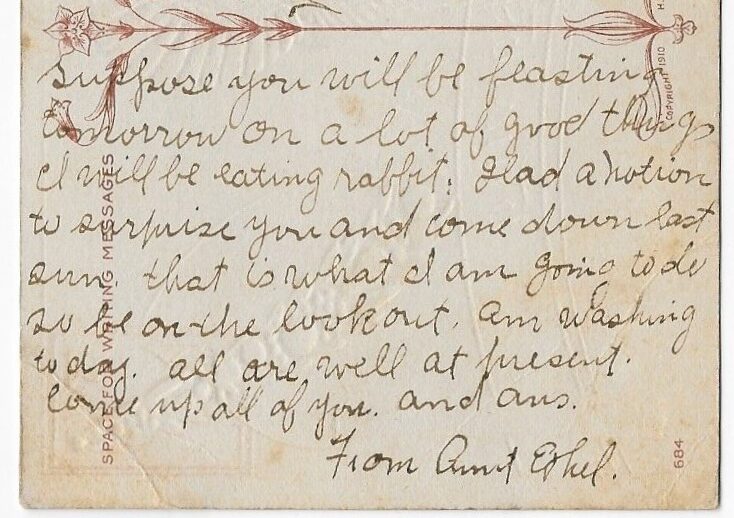 Suppose you will be feasting
tomorrow on a lot of good things
I will be eating rabbit. I had a notion
to surprise you and come down last
sun. that is what I am going to do
so be on the lookout. am washing
today. all are well at present.
Come up all of you. and ans.
From Aunt Ethel.
SPACE FOR WRITING MESSAGES
COPYRIGHT 1910
H.
684